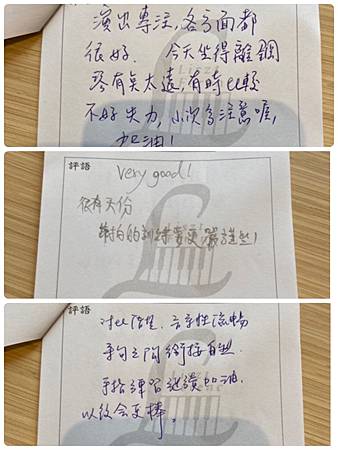 演出專注,各方面都
很好. 今天坐得離鋼
琴有点太遠,有時比較
不好出力,下次多注意喔,
加油!
評語
Very good!
很有天份
節拍的訓練要更嚴謹些!
評語
對比 音樂性流暢
樂句之間銜接自然.
手指練習繼續加油.
以後會更棒。